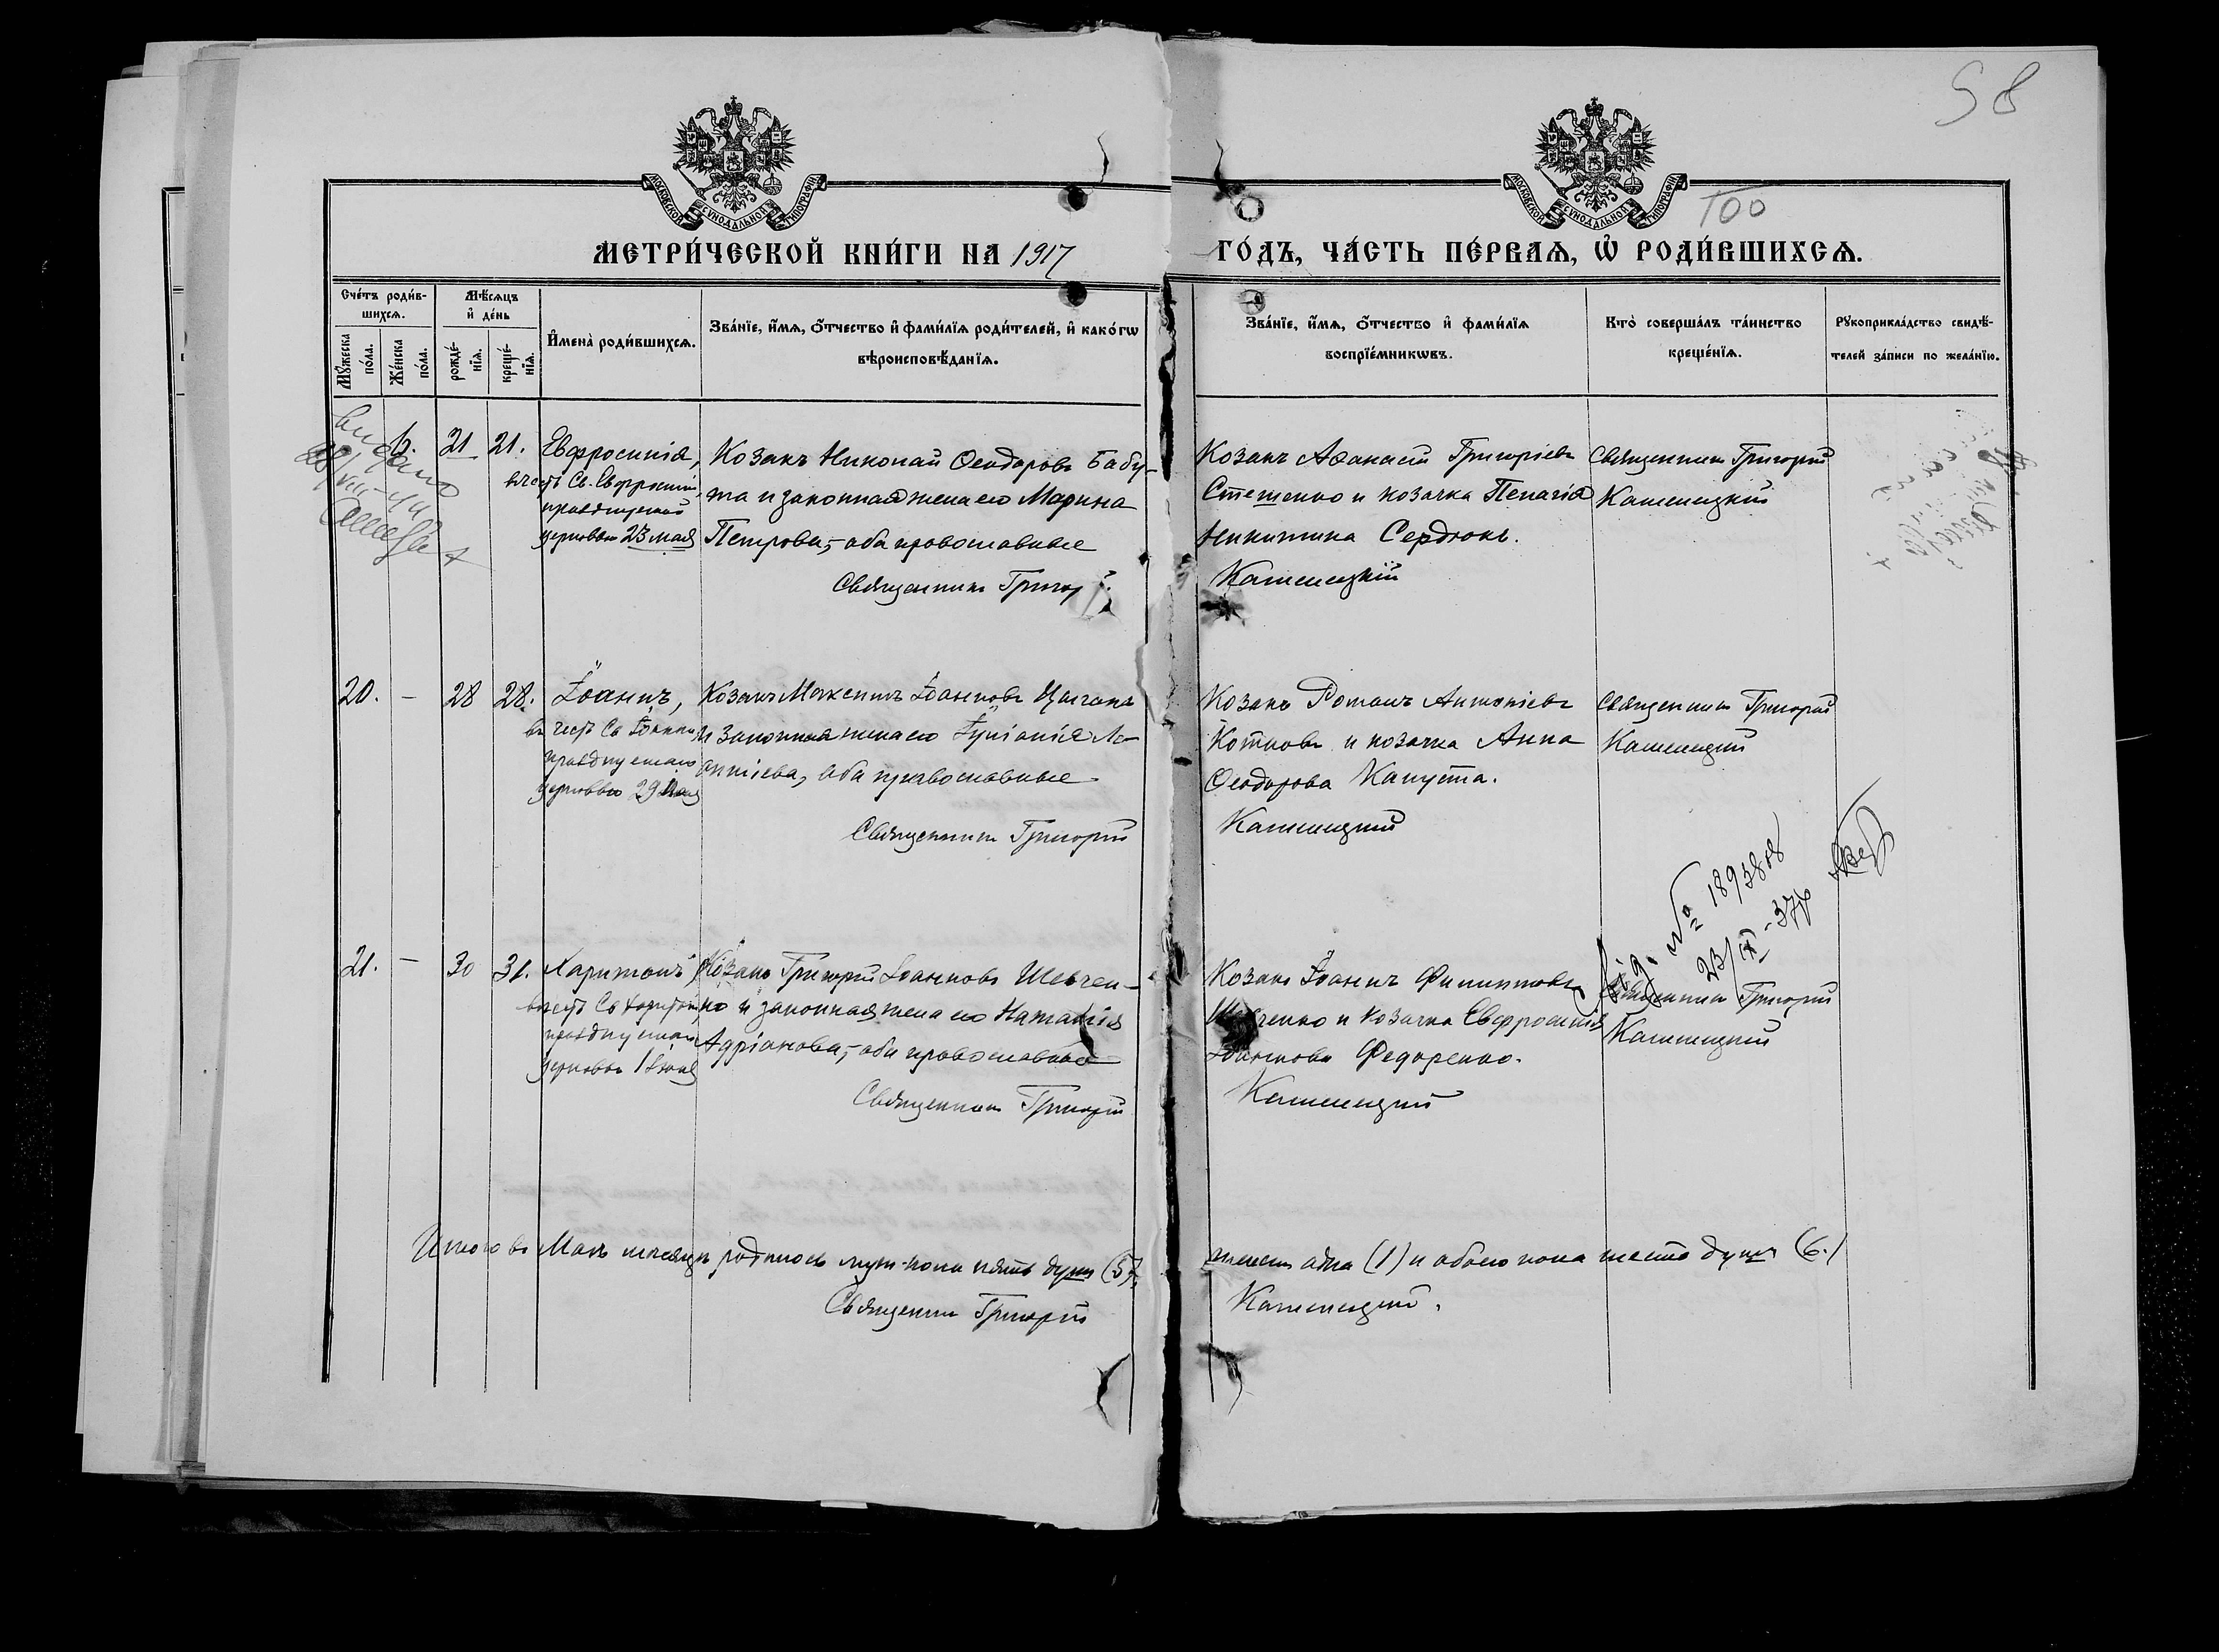 58
МОСКОВСКОЙ СѴНОДАЛЬНОЙ ТИПОГРАФІИ
МОСКОВСКОЙ СѴНОДАЛЬНОЙ ТИПОГРАФІИ
100
МЕТРИ́ЧЕСКОЙ КНИ́ГИ НА 1917
ГО́ДЪ, ЧА́СТЬ ПЕ́РВАѦ, Ѿ РОДИ́ВШИХСѦ.
Сче́тъ роди́в-
шихсѧ.
Мѣ́сѧцъ
и҆ де́нь
Мꙋ́жеска
по́ла.
Же́нска
по́ла.
рожде́-
нїѧ.
креще́-
нїѧ.
И҆мена̀ роди́вшихсѧ.
Зва́нїе, и҆́мѧ, ѻ҆́тчество и҆ фами́лїѧ роди́телей, и҆ како́гѡ
вѣроисповѣ́данїѧ.
Зва́нїе, и҆́мѧ, ѻ҆́тчество и҆ фами́лїѧ
воспрїе́мникѡвъ.
Кто̀ соверша́лъ та́инство
креще́нїѧ.
Рꙋкоприкла́дство свидѣ́-
телей за́писи по жела́нїю.
6. 21 21. Евфросинія,
въ честь Св. Евфросиніи,
празднуемой
церковью 23 мая
Козакъ Николай Ѳеодоровъ Бабу-
та и законная жена его Марина
Петрова, - оба православные
Священникъ Григорій
Козакъ Аѳанасій Григоріевъ
Стешенко и козачка Пелагія
Никитина Сердюкъ.
Каменецкій
Священникъ Григорій
Каменецкій
20. - 28 28. Іоаннъ,
въ честь Св Іоанна
празднуемаго
церковью 29 Мая
Козакъ Максимъ Іоанновъ Цыганъ
и законная жена его Іуліанія Ле-
онтіева, оба православные
Священникъ Григорій
Козакъ Романъ Антоніевъ
Котковъ и козачка Анна
Ѳеодорова Капуста.
Каменецкій
Священникъ Григорій
Каменецкій
№ 1893808
23/IX-37
21. - 30 31. Харитонъ,
въ честь Св Харитона,
празднуемаго
церковью 1 Іюня
Козакъ Григорій Іоанновъ Шевчен-
ко и законная жена его Наталія
Адріанова, - оба православные
Священникъ Григорій
Козакъ Іоаннъ Филипповъ
Шевченко и козачка Евфросинія
Іоаннова Федоренко.
Каменецкій
Священникъ Григорій
Каменецкій
Итого въ Маѣ мѣсяцѣ родилось муж. пола пять душъ (5),
женск одна (1) и обоего пола шесть душъ (6.)
Священникъ Григорій
Каменецкій.